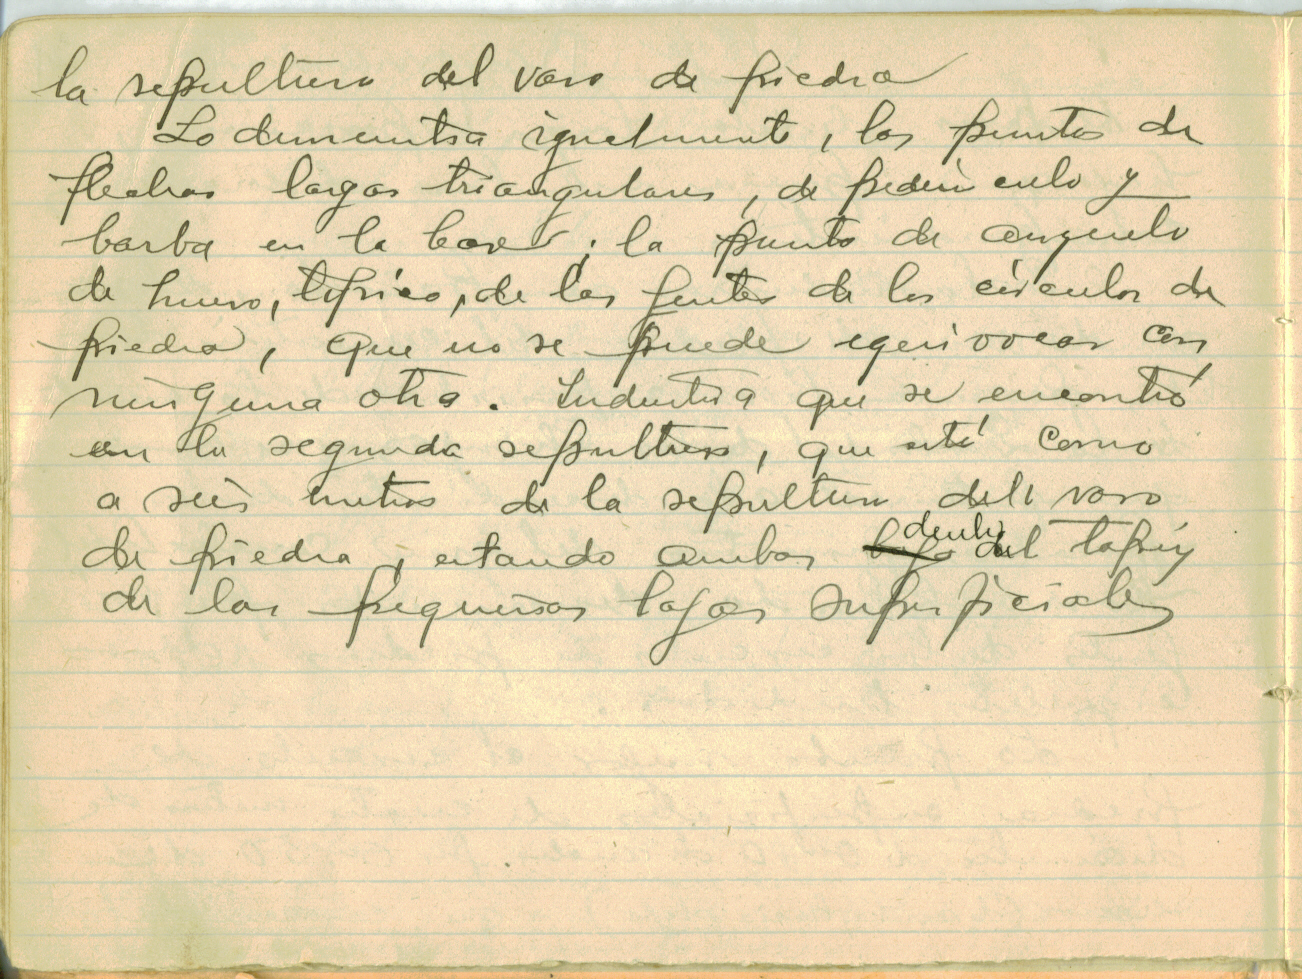 la sepultura del vaso de piedra
Lo demuestra igualmente, las puntas de
flechas largas triangulares, de pedúnculo y
barba en la base; la punta de anzuelo
de hueso, típico, de las gentes de los círculos de
piedra, que no se puede equivocar con
ninguna otra. Industria que se encontró
en la segunda sepultura, que está como
a seis metros de la sepultura dell vaso
de piedra, estando ambas bajo dentro del tapiz
de las pequeñas lajas superficiales